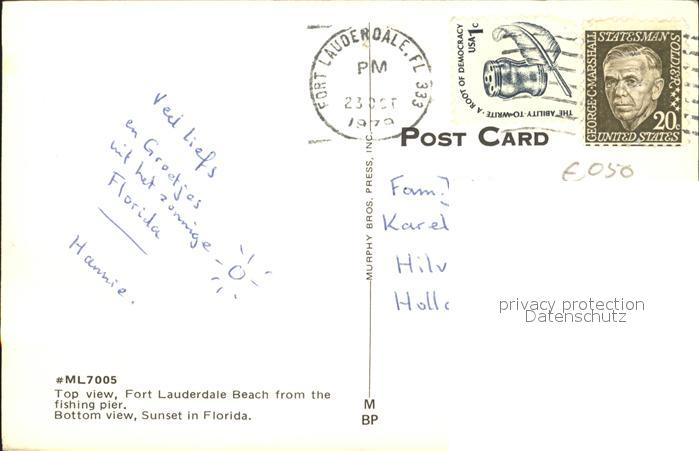 FORT LAUDERDALE, FL 333
PM
23 OCT
1979
USA 1c
THE ABILITY-TO-WRITE • A ROOT OF DEMOCRACY
GEORGE C. MARSHALL
STATESMAN SOLDIER
20c
UNITED STATES
POST CARD
€ 050
Veel liefs
en Groetjes
uit het zonnige
Florida
Hannie.
Fam.
Karel
Hilv
Holl
MURPHY BROS. PRESS, INC.
M
BP
privacy protection
Datenschutz
#ML7005
Top view, Fort Lauderdale Beach from the
fishing pier.
Bottom view, Sunset in Florida.